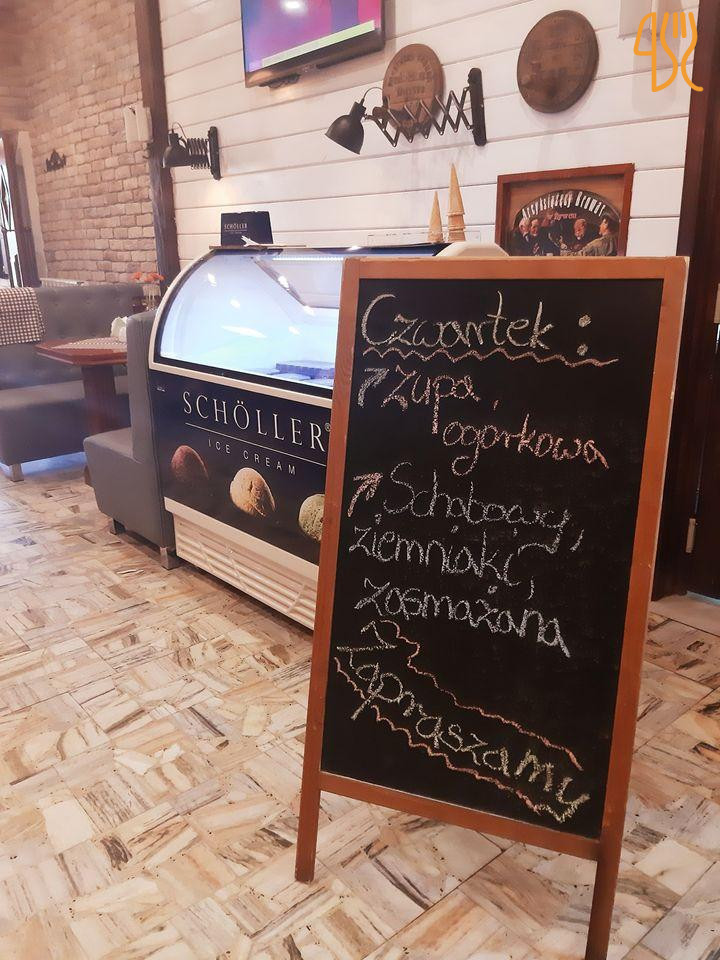 SCHÖLLER
Arcyksiążęcy Browar
SCHÖLLER®
ICE CREAM
Czwartek:
Zupa
ogórkowa
Schabowy,
ziemniaki,
zasmażana
Zapraszamy